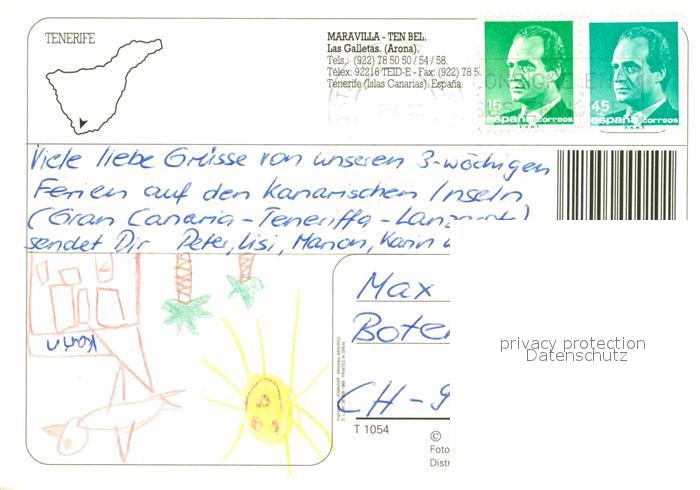 TENERIFE
MARAVILLA - TEN BEL.
Las Galletas. (Arona).
Tels.: (922) 78 50 50 / 54 / 58.
Télex: 92216 TEID-E - Fax: (922) 78 5
Tenerife (Islas Canarias). España.
15
españa correos
F.N.M.T.
45
españa correos
F.N.M.T.
Viele liebe Grüsse von unseren 3-wöchigen
Ferien auf den Kanarischen Inseln
(Gran Canaria - Teneriffa -
sendet Dir Peter, Lisi, Manon, Karin
Max
CH-9
privacy protection
Datenschutz
Karin
T 1054
©
Foto
Distr